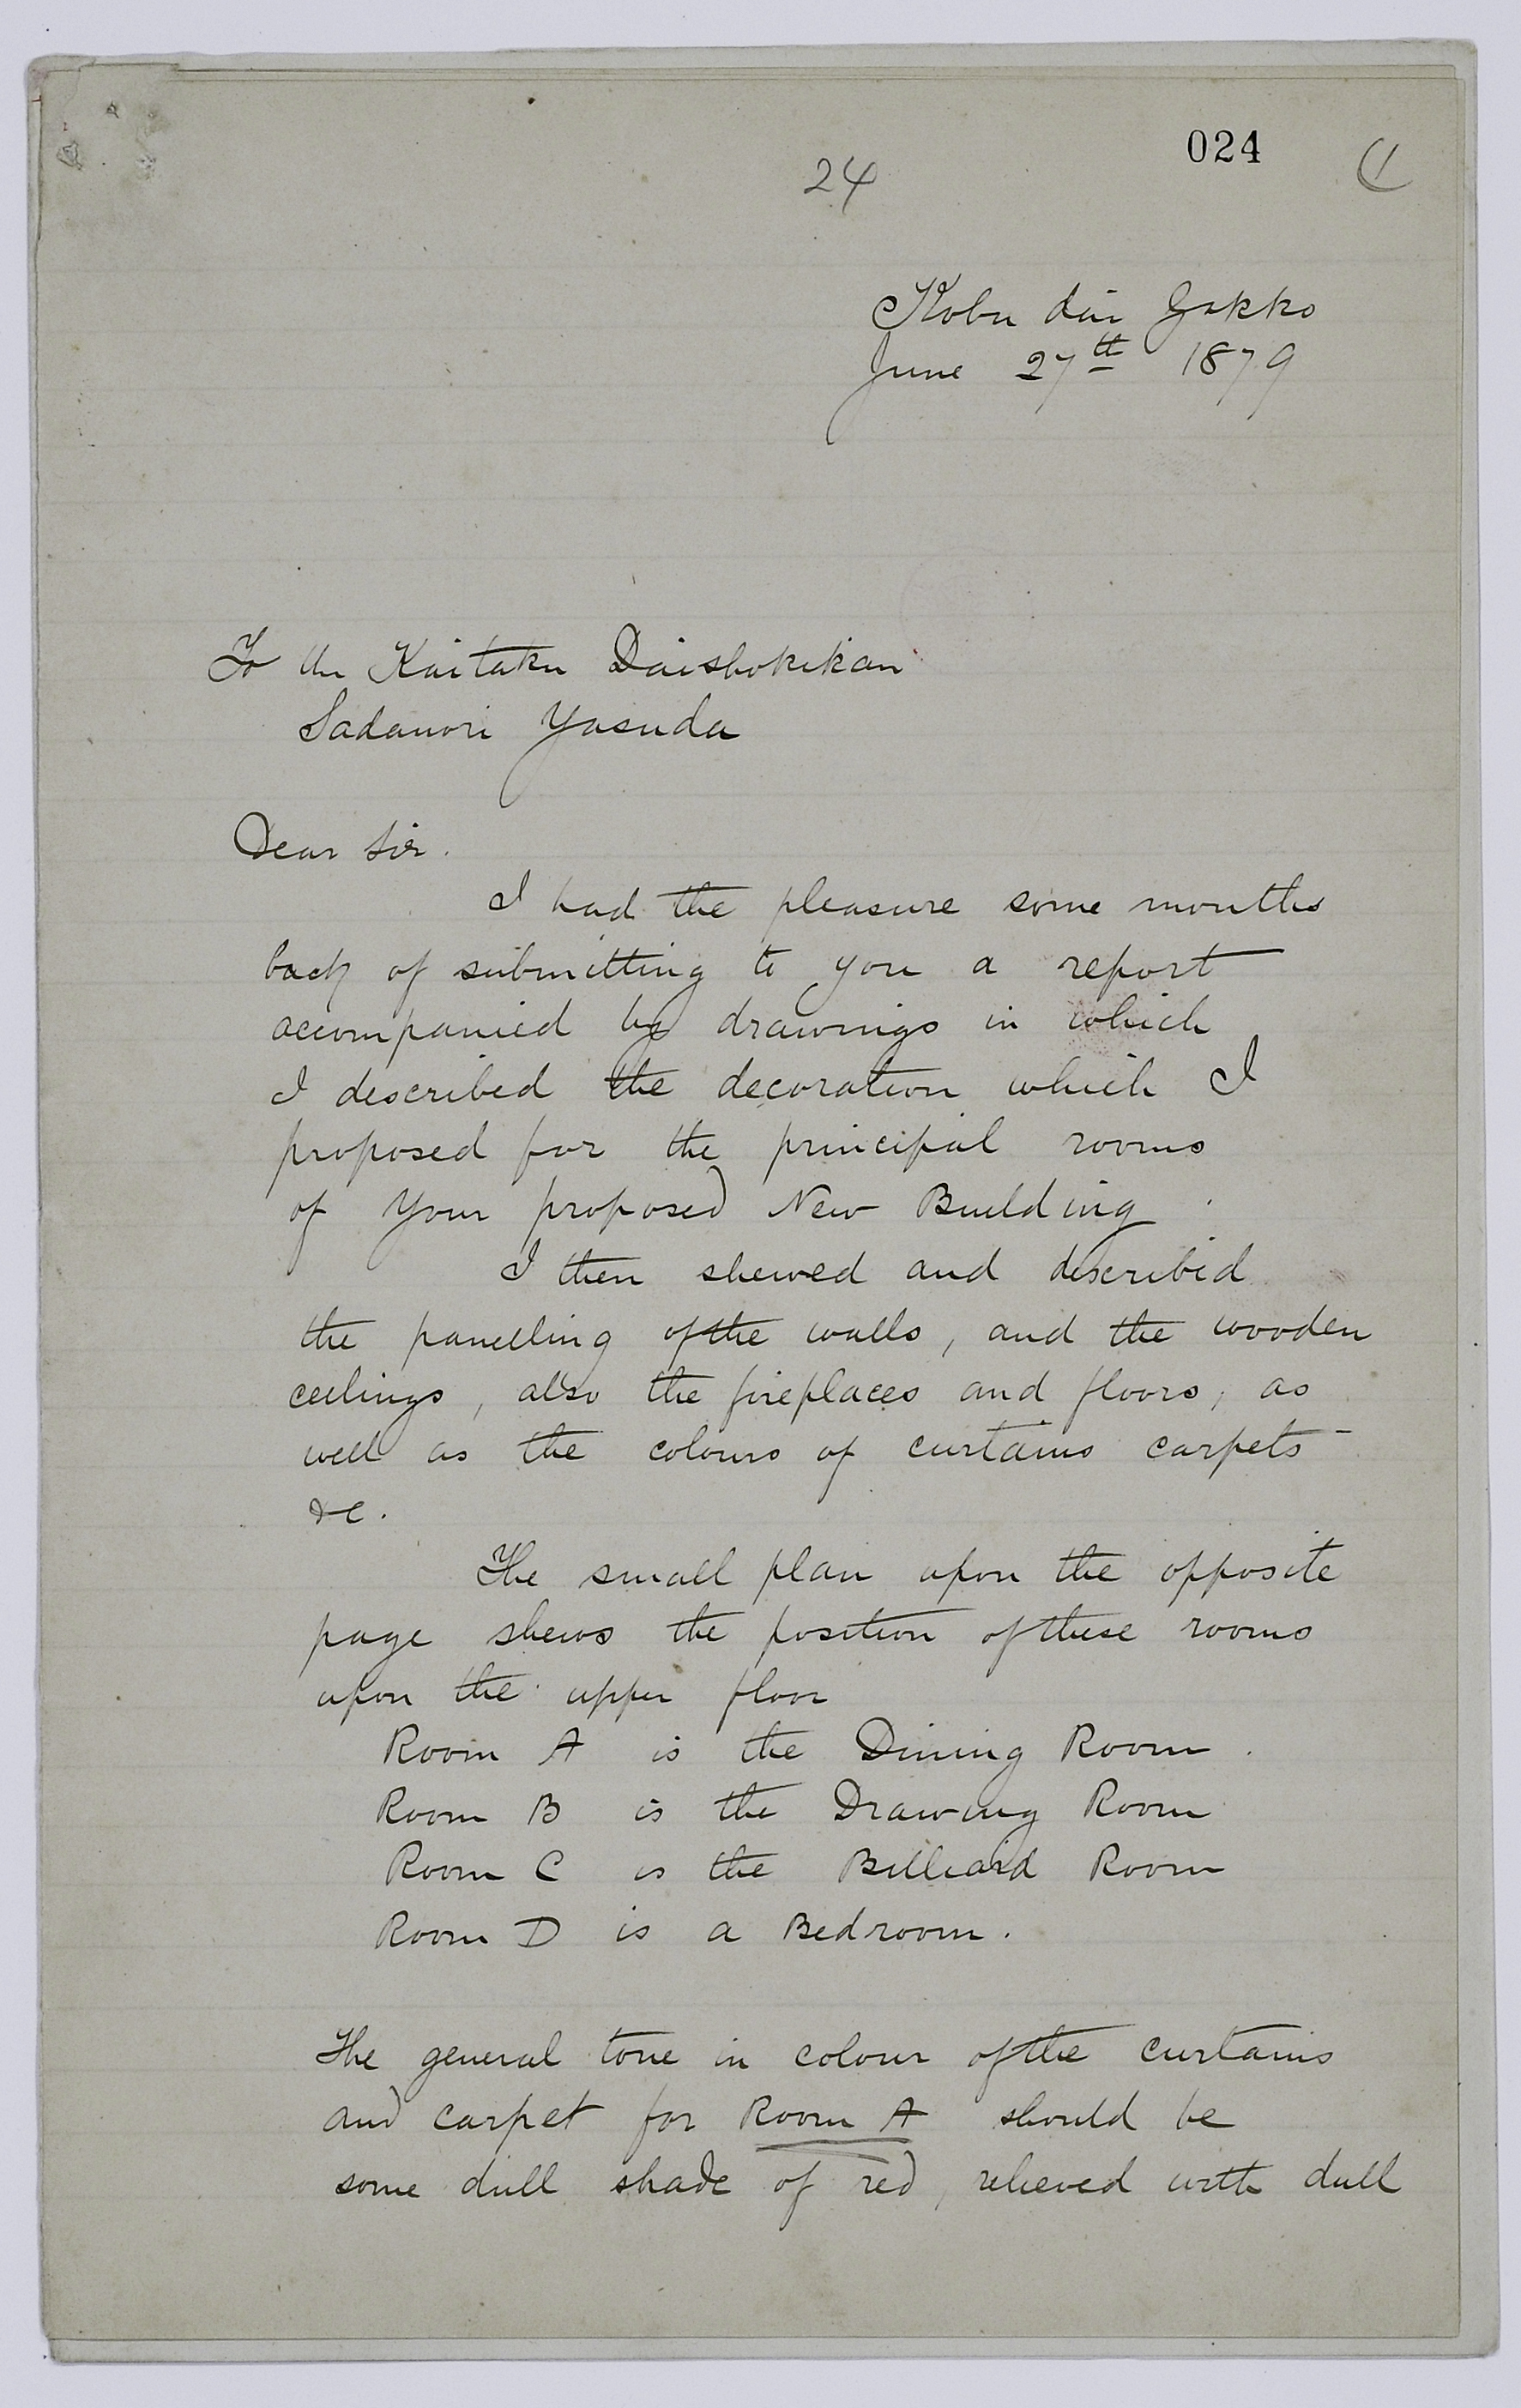 024
24
Kobu dai Gakko
June 27th 1879
To the Kaitaku Daishokikan
Sadanori Yasuda
Dear Sir.
I had the pleasure some months
back of submitting to you a report
accompanied by drawings in which
I described the decoration which I
proposed for the principal rooms
of your proposed New Building.
I then shewed and described
the panelling of the walls, and the wooden
ceilings, also the fireplaces and floors, as
well as the colours of curtains carpets
&c.
The small plan upon the opposite
page shews the position of these rooms
upon the upper floor
Room A is the Dining Room.
Room B is the Drawing Room
Room C is the Billiard Room
Room D is a Bedroom.
The general tone in colour of the curtains
and carpet for Room A should be
some dull shade of red, relieved with dull